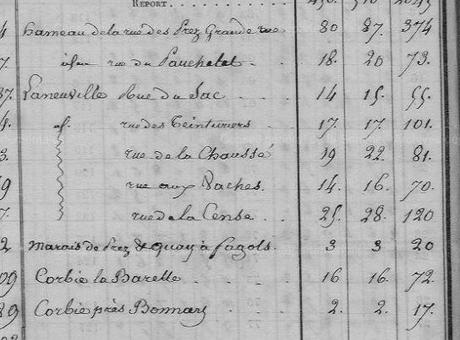 REPORT. . . . . . . .
4 hameau de la rue des Prez Grande rue 80 87. 374
7. rue du Pauchelet . 18. 20 73.
37. Laneuville Rue du Sac . . . 14 15. 55.
4. rue des Teinturiers . . 17. 17. 101.
3. rue de la Chaussé 19 22. 81.
9 rue aux Vaches. 14. 16. 70.
7. rue de la Cense . . . 25. 28. 120
2 marais de Prez & quay à fagots. 3 3 20
09 Corbie la Barette . . . . 16 16. 72.
89 Corbie près Bonnay . . . 2. 2. 17.